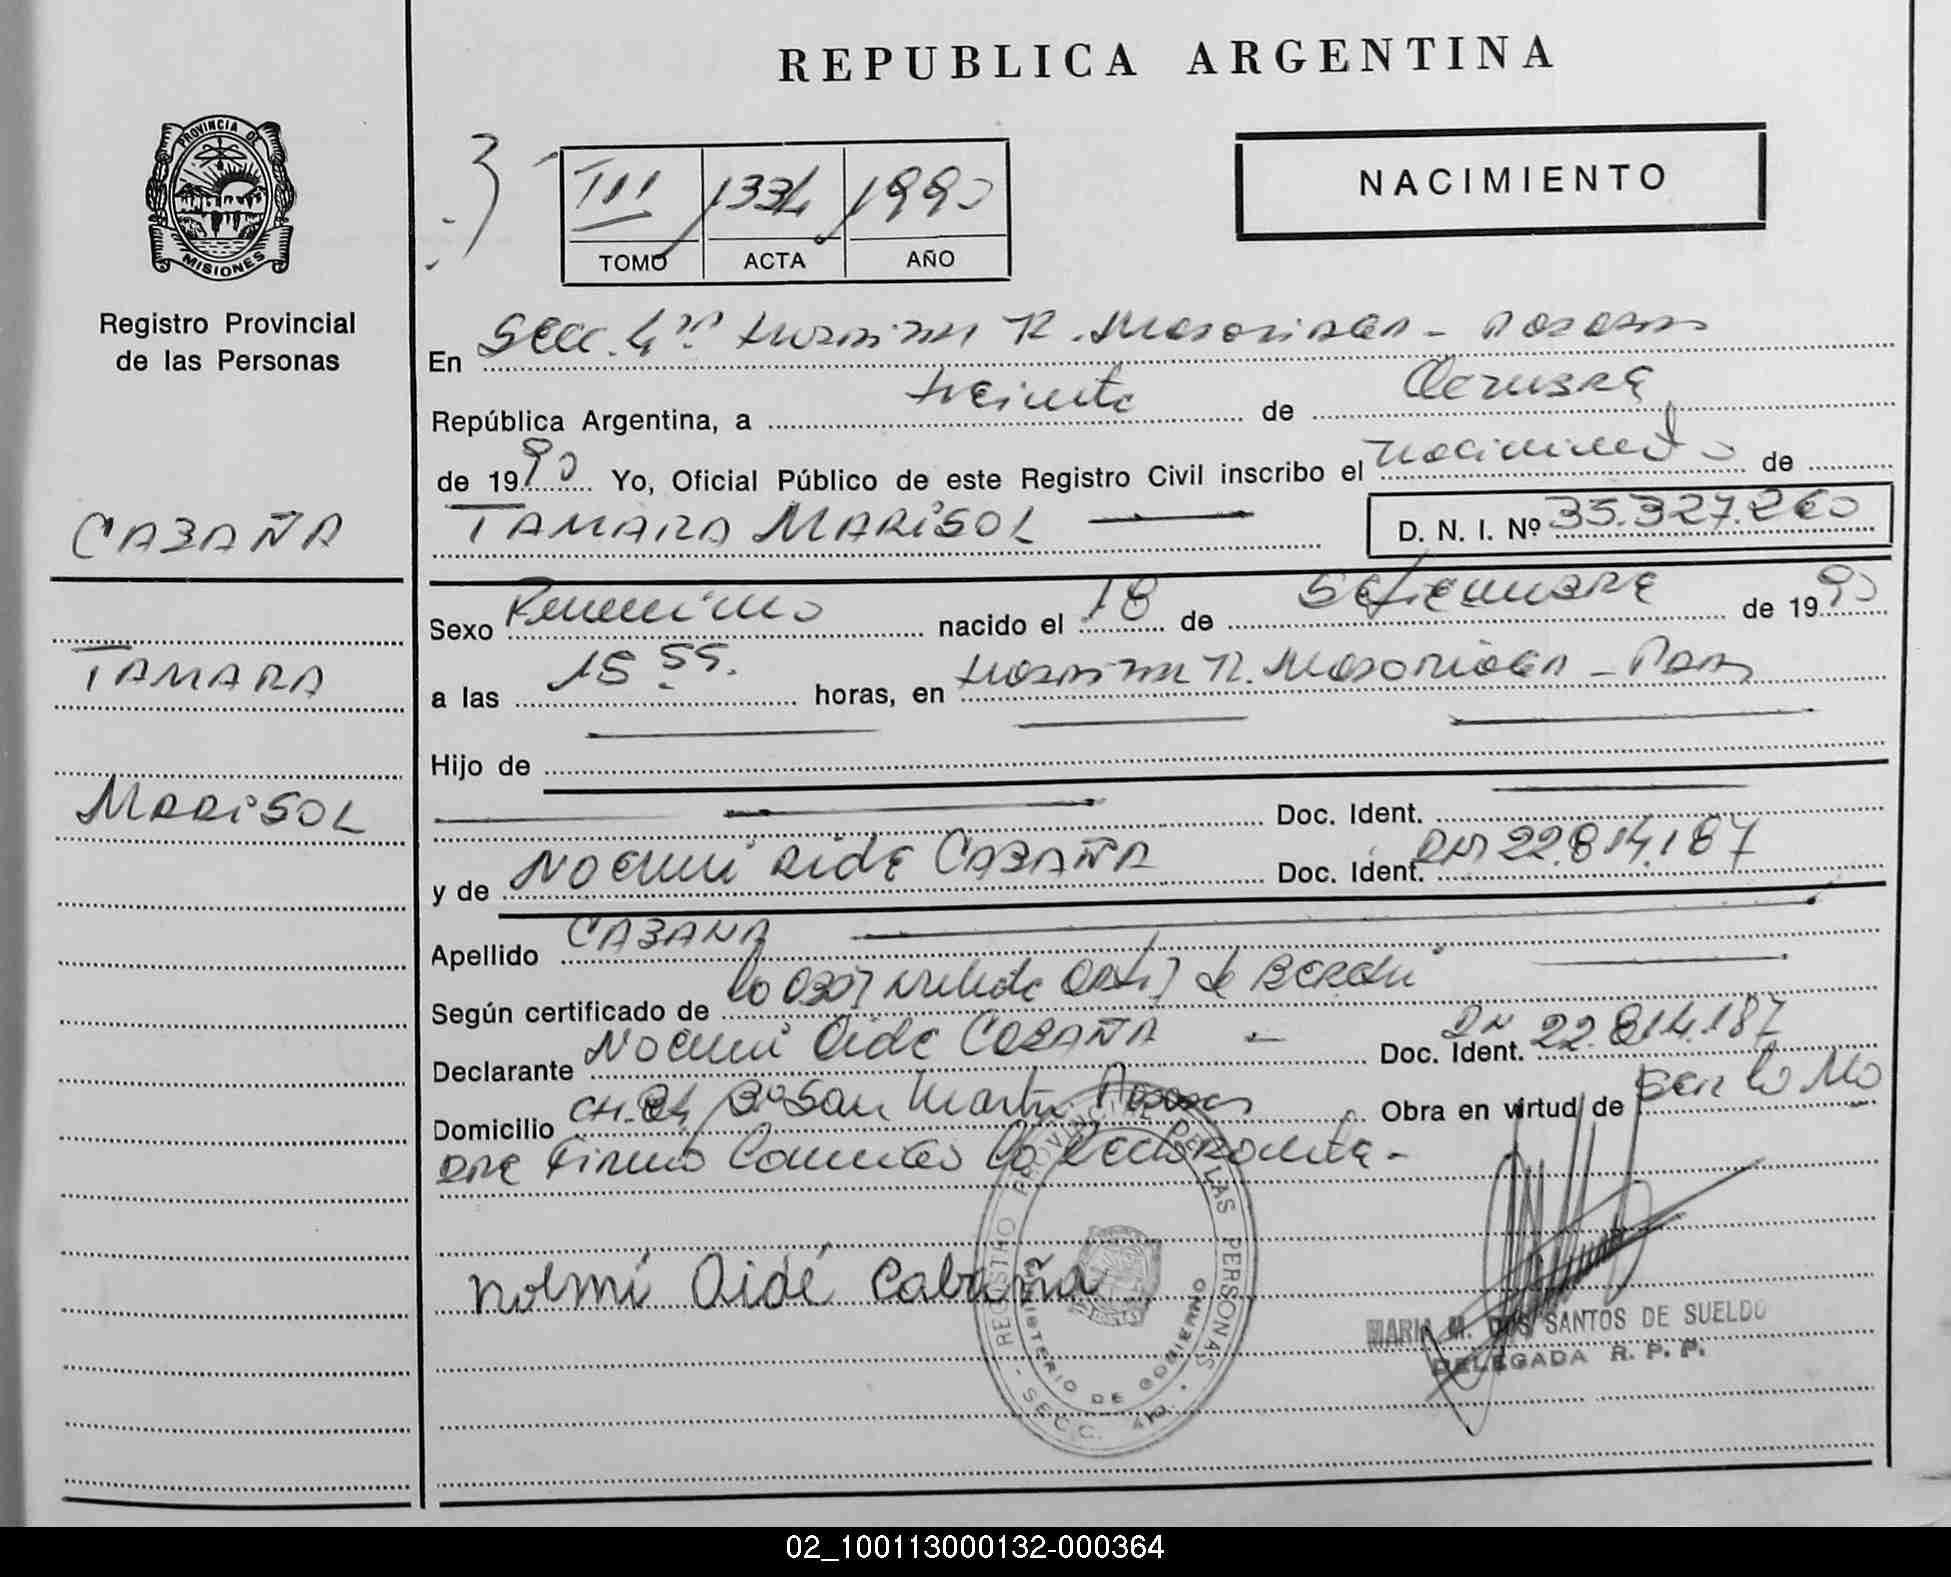 REPUBLICA ARGENTINA
PROVINCIA DE
MISIONES
Registro Provincial
de las Personas
III 1334 1990
TOMO ACTA AÑO
NACIMIENTO
En Secc. 4ta R. Posadas
República Argentina, a treinta de Octubre
de 1990 Yo, Oficial Público de este Registro Civil inscribo el nacimiento de
TAMARA MARISOL D. N. I. Nº 35.327.260
CABAÑA
TAMARA
MARISOL
Sexo Femenino nacido el 18 de Setiembre de 1990
a las 15 55. horas, en R. - Pdas
Hijo de
Doc. Ident.
y de Noemí Aide CABAÑA Doc. Ident. DNI 22.814.187
Apellido CABAÑA
Según certificado de la Obst Ortiz de
Declarante Noemí Aide CABAÑA - Doc. Ident. DNI 22.814.187
Domicilio CH. Bº San Martin Posadas Obra en virtud de ser la Ma
dre Firma Conmigo la Declarante -
Noemí Aidé Cabaña
REGISTRO PROVINCIAL DE LAS PERSONAS - SECC. 4ta.
MINISTERIO DE GOBIERNO
MARIA M. DOS SANTOS DE SUELDO
DELEGADA R. P. P.
02_100113000132-000364